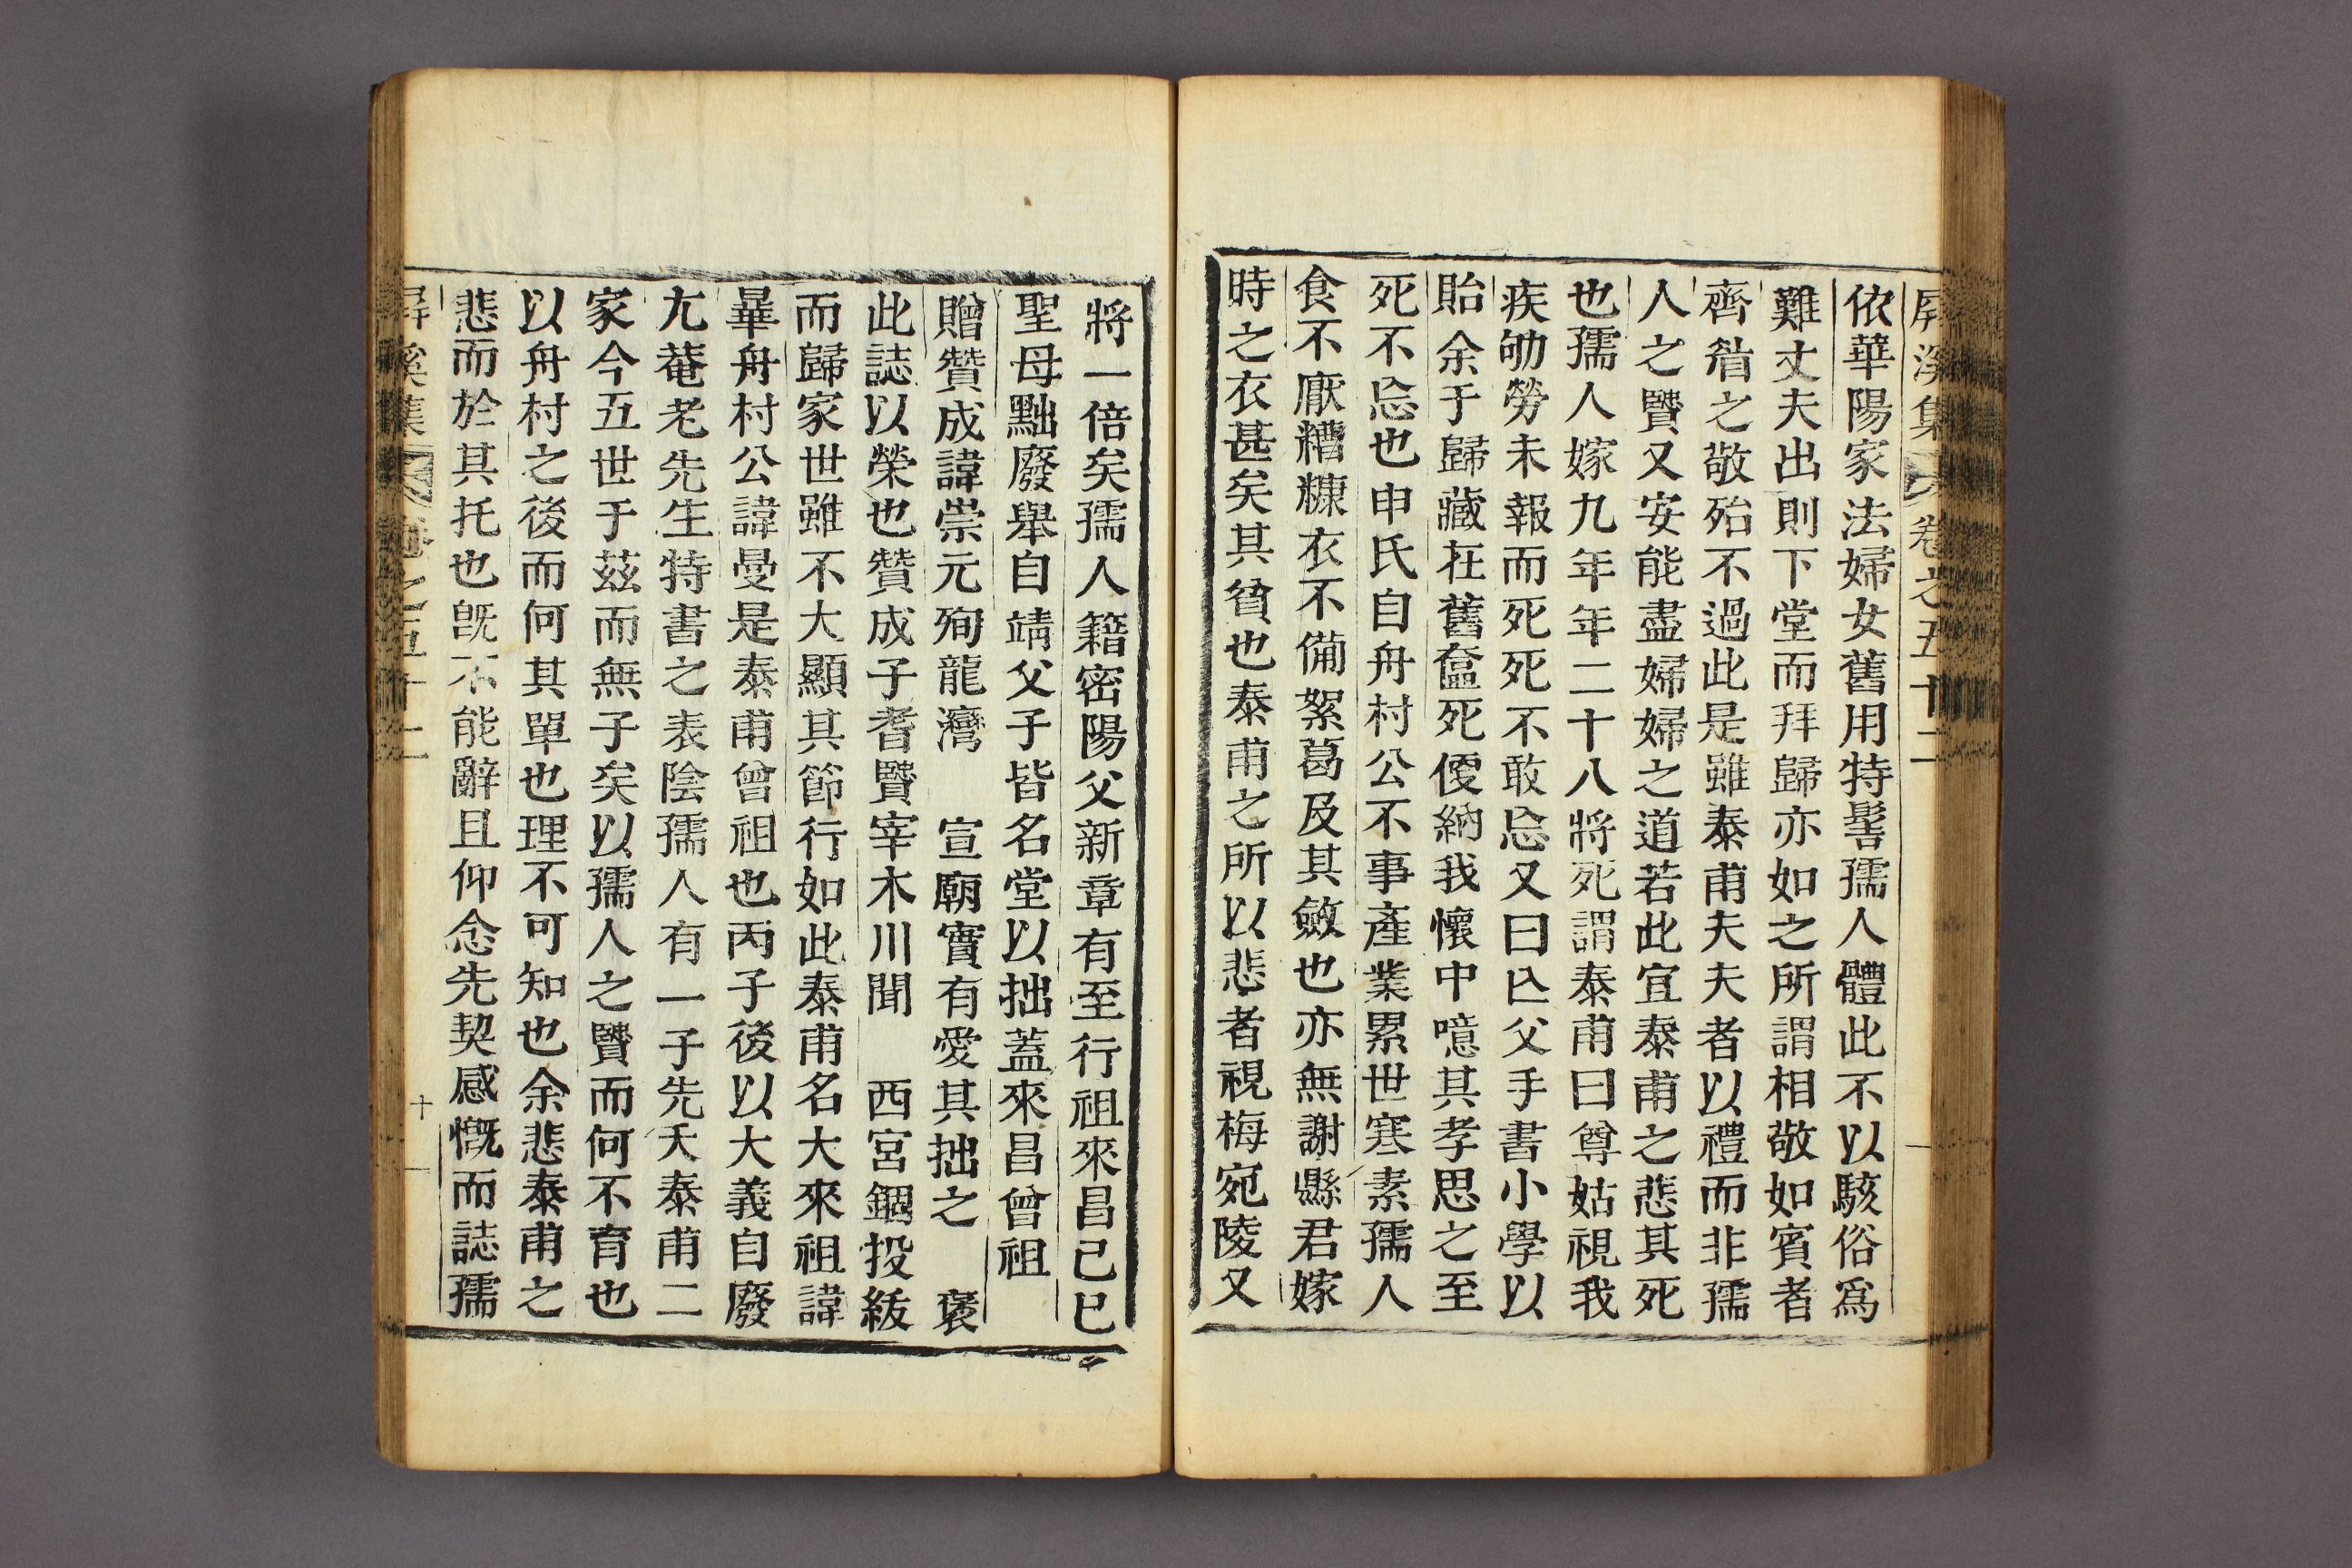 屛溪集 卷之五十二
依華陽家法婦女舊用特髻孺人體此不以駭俗爲
難丈夫出則下堂而拜歸亦如之所謂相敬如賓者
齊眉之敬殆不過此是雖泰甫夫夫者以禮而非孺
人之賢又安能盡婦婦之道若此宜泰甫之悲其死
也孺人嫁九年年二十八將死謂泰甫曰尊姑視我
疾劬勞未報而死死不敢忘又曰亾父手書小學以
貽余于歸藏在舊奩死便納我懷中噫其孝思之至
死不忘也申氏自舟村公不事產業累世寒素孺人
食不厭糟糠衣不備絮葛及其斂也亦無謝縣君嫁
時之衣甚矣其貧也泰甫之所以悲者視梅宛陵又
將一倍矣孺人籍密陽父新章有至行祖來昌己巳
聖母黜廢舉自靖父子皆名堂以拙蓋來昌曾祖
贈贊成諱崇元殉龍灣 宣廟實有愛其拙之 褒
此誌以榮也贊成子耆賢宰木川聞 西宮錮投紱
而歸家世雖不大顯其節行如此泰甫名大來祖諱
暴舟村公諱曼是泰甫曾祖也丙子後以大義自廢
尤菴老先生特書之表陰孺人有一子先夭泰甫二
家今五世于茲而無子矣以孺人之賢而何不育也
以舟村之後而何其單也理不可知也余悲泰甫之
悲而於其托也旣不能辭且仰念先契感慨而誌孺
屛溪集 卷之五十二
十一